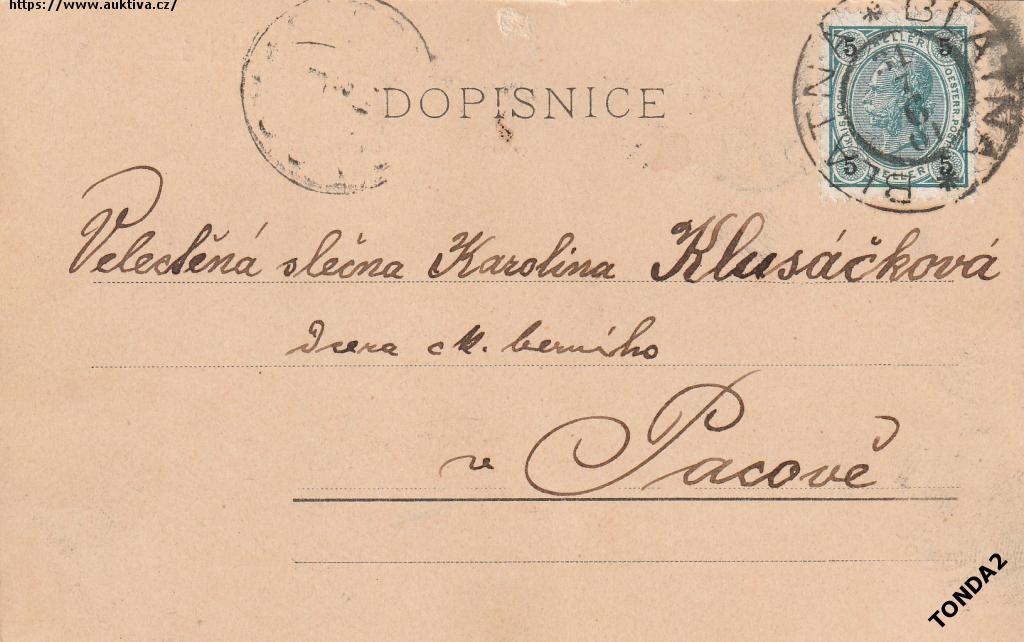 https://www.auktiva.cz/
DOPISNICE
BLATNA * BLATNA *
5 HELLER 5
OESTERR. POST
5 HELLER 5
Velectěná slečna Karolina Klusáčková
Dcera c k. berního
v Pacově
TONDA2